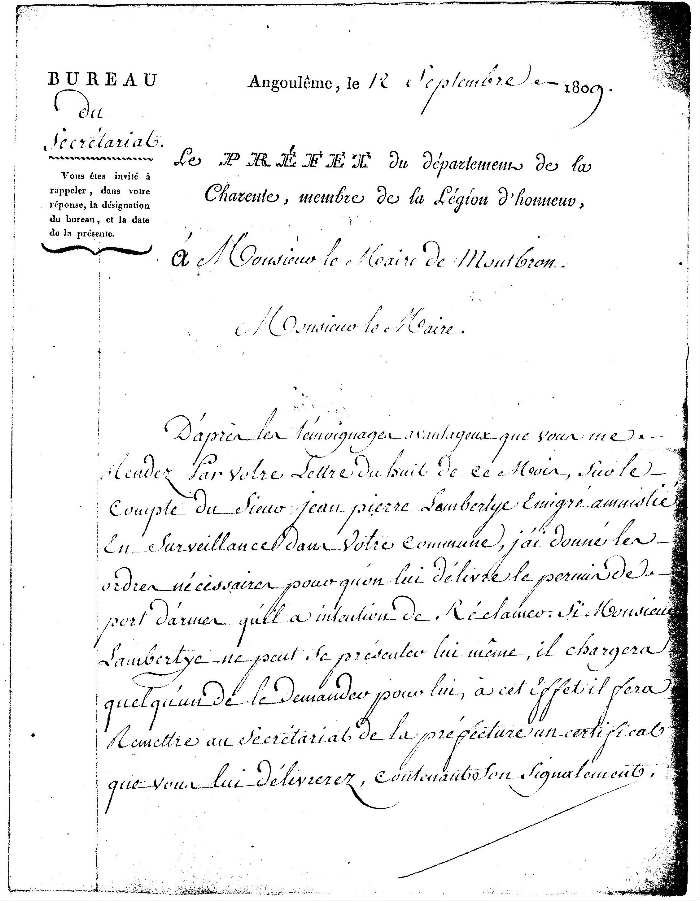 BUREAU
du
Secrétariat.
Vous êtes invité à
rappeler, dans votre
réponse, la désignation
du bureau, et la date
de la présente.
Angoulême, le 12 Septembre 1809.
Le PRÉFET du département de la
Charente, membre de la Légion d'honneur,
à Monsieur le Maire de Montbron.
Monsieur le Maire.
D'après les témoignages avantageux que vous me
Rendez Par Votre Lettre du huit de ce Mois, Sur le
Compte du Sieur jean pierre Lambertye Emigré amnistié
En Surveillance dans Votre Commune, j'ai donné les
ordres nécessaires pour qu'on lui délivre le permis de
port d'armes qu'il a intention de Réclamer. Si Monsieur
Lambertye ne peut Se présenter lui même, il chargera
quelqu'un de le demander pour lui, à cet Effet il fera
Remettre au Secrétariat de la préfecture un certificat
que vous lui délivrerez, Contenant Son Signalement.